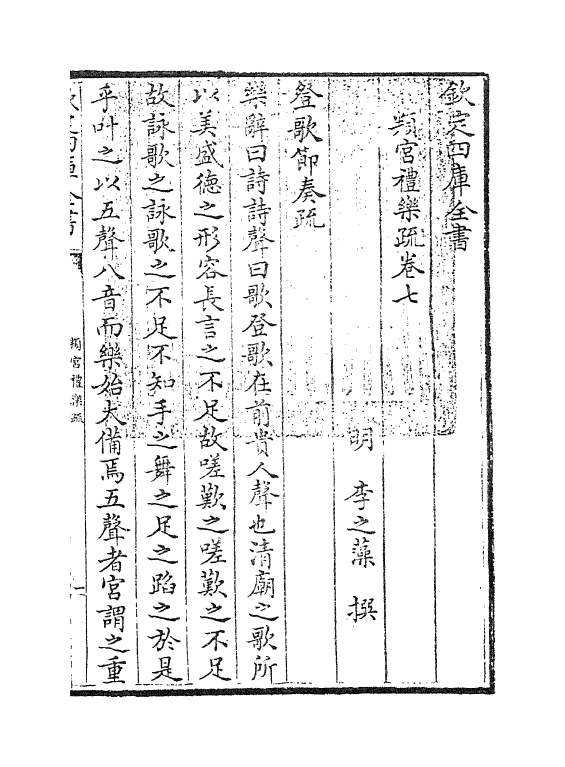 欽定四庫全書
頖宮禮樂疏卷七
明 李之藻 撰
登歌節奏疏
樂辭曰詩詩聲曰歌登歌在前貴人聲也清廟之歌所
以美盛德之形容長言之不足故嗟歎之嗟歎之不足
故詠歌之詠歌之不足不知手之舞之足之蹈之於是
乎叶之以五聲八音而樂始大備焉五聲者宮謂之重
欽定四庫全書
頖宮禮樂疏